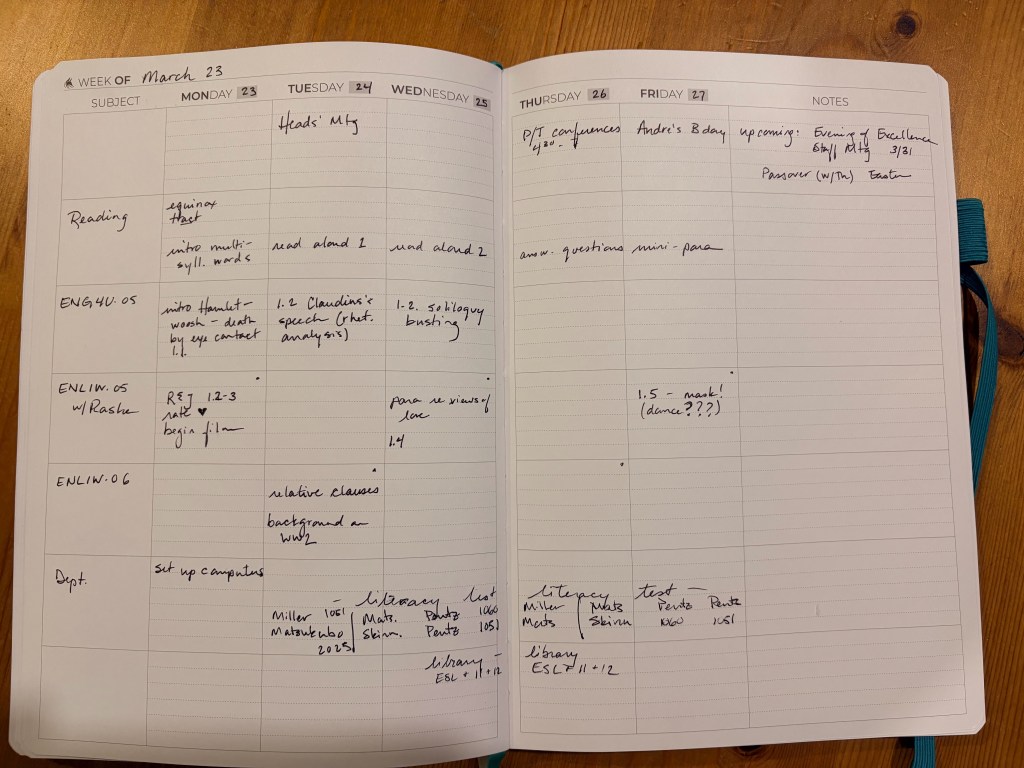 WEEK OF March 23
SUBJECT MONDAY 23 TUESDAY 24 WEDNESDAY 25 THURSDAY 26 FRIDAY 27 NOTES
Heads' Mtg
P/T conferences
Andre's Bday
upcoming: Evening of Excellence
Staff Mtg 3/31
Passover (W/Th) Easter
Reading
equinox
intro multi-
syll. words
read aloud 1
read aloud 2
answ. questions
mini-para
ENG4U.05
intro Hamlet-
woosh - death
by eye contact
1.1.
1.2 Claudius's
speech (rhet.
analysis)
1.2. soliloquy
busting
ENL1W.05
w/
R&J 1.2-3
rate ♥
begin film
para re views of
love
1.4
1.5 - mask!
(dance???)
ENL1W.06
relative clauses
background on
WW2
Dept.
set up computers
- literacy test
Miller 1051
Matsukubo
2025
Mats. Pentz 1060
Skinn. Pentz 1051
literacy test -
Miller
Mats
Mats Pentz Pentz
Skinn 1060 1051
library -
ESL + 11 + 12
library
ESL + 11 + 12